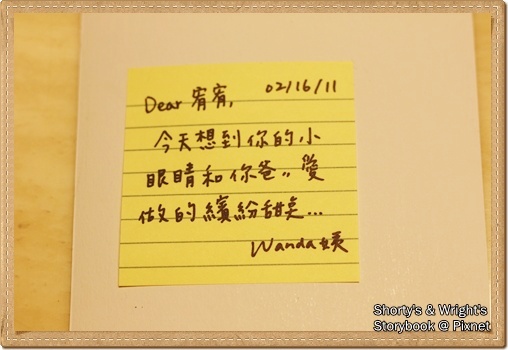 Dear 宥宥, 02/16/11
今天想到你的小
眼睛和你爸〃愛
做的繽紛甜桌...
Wanda 姨
Shorty's & Wright's
Storybook @ Pixnet